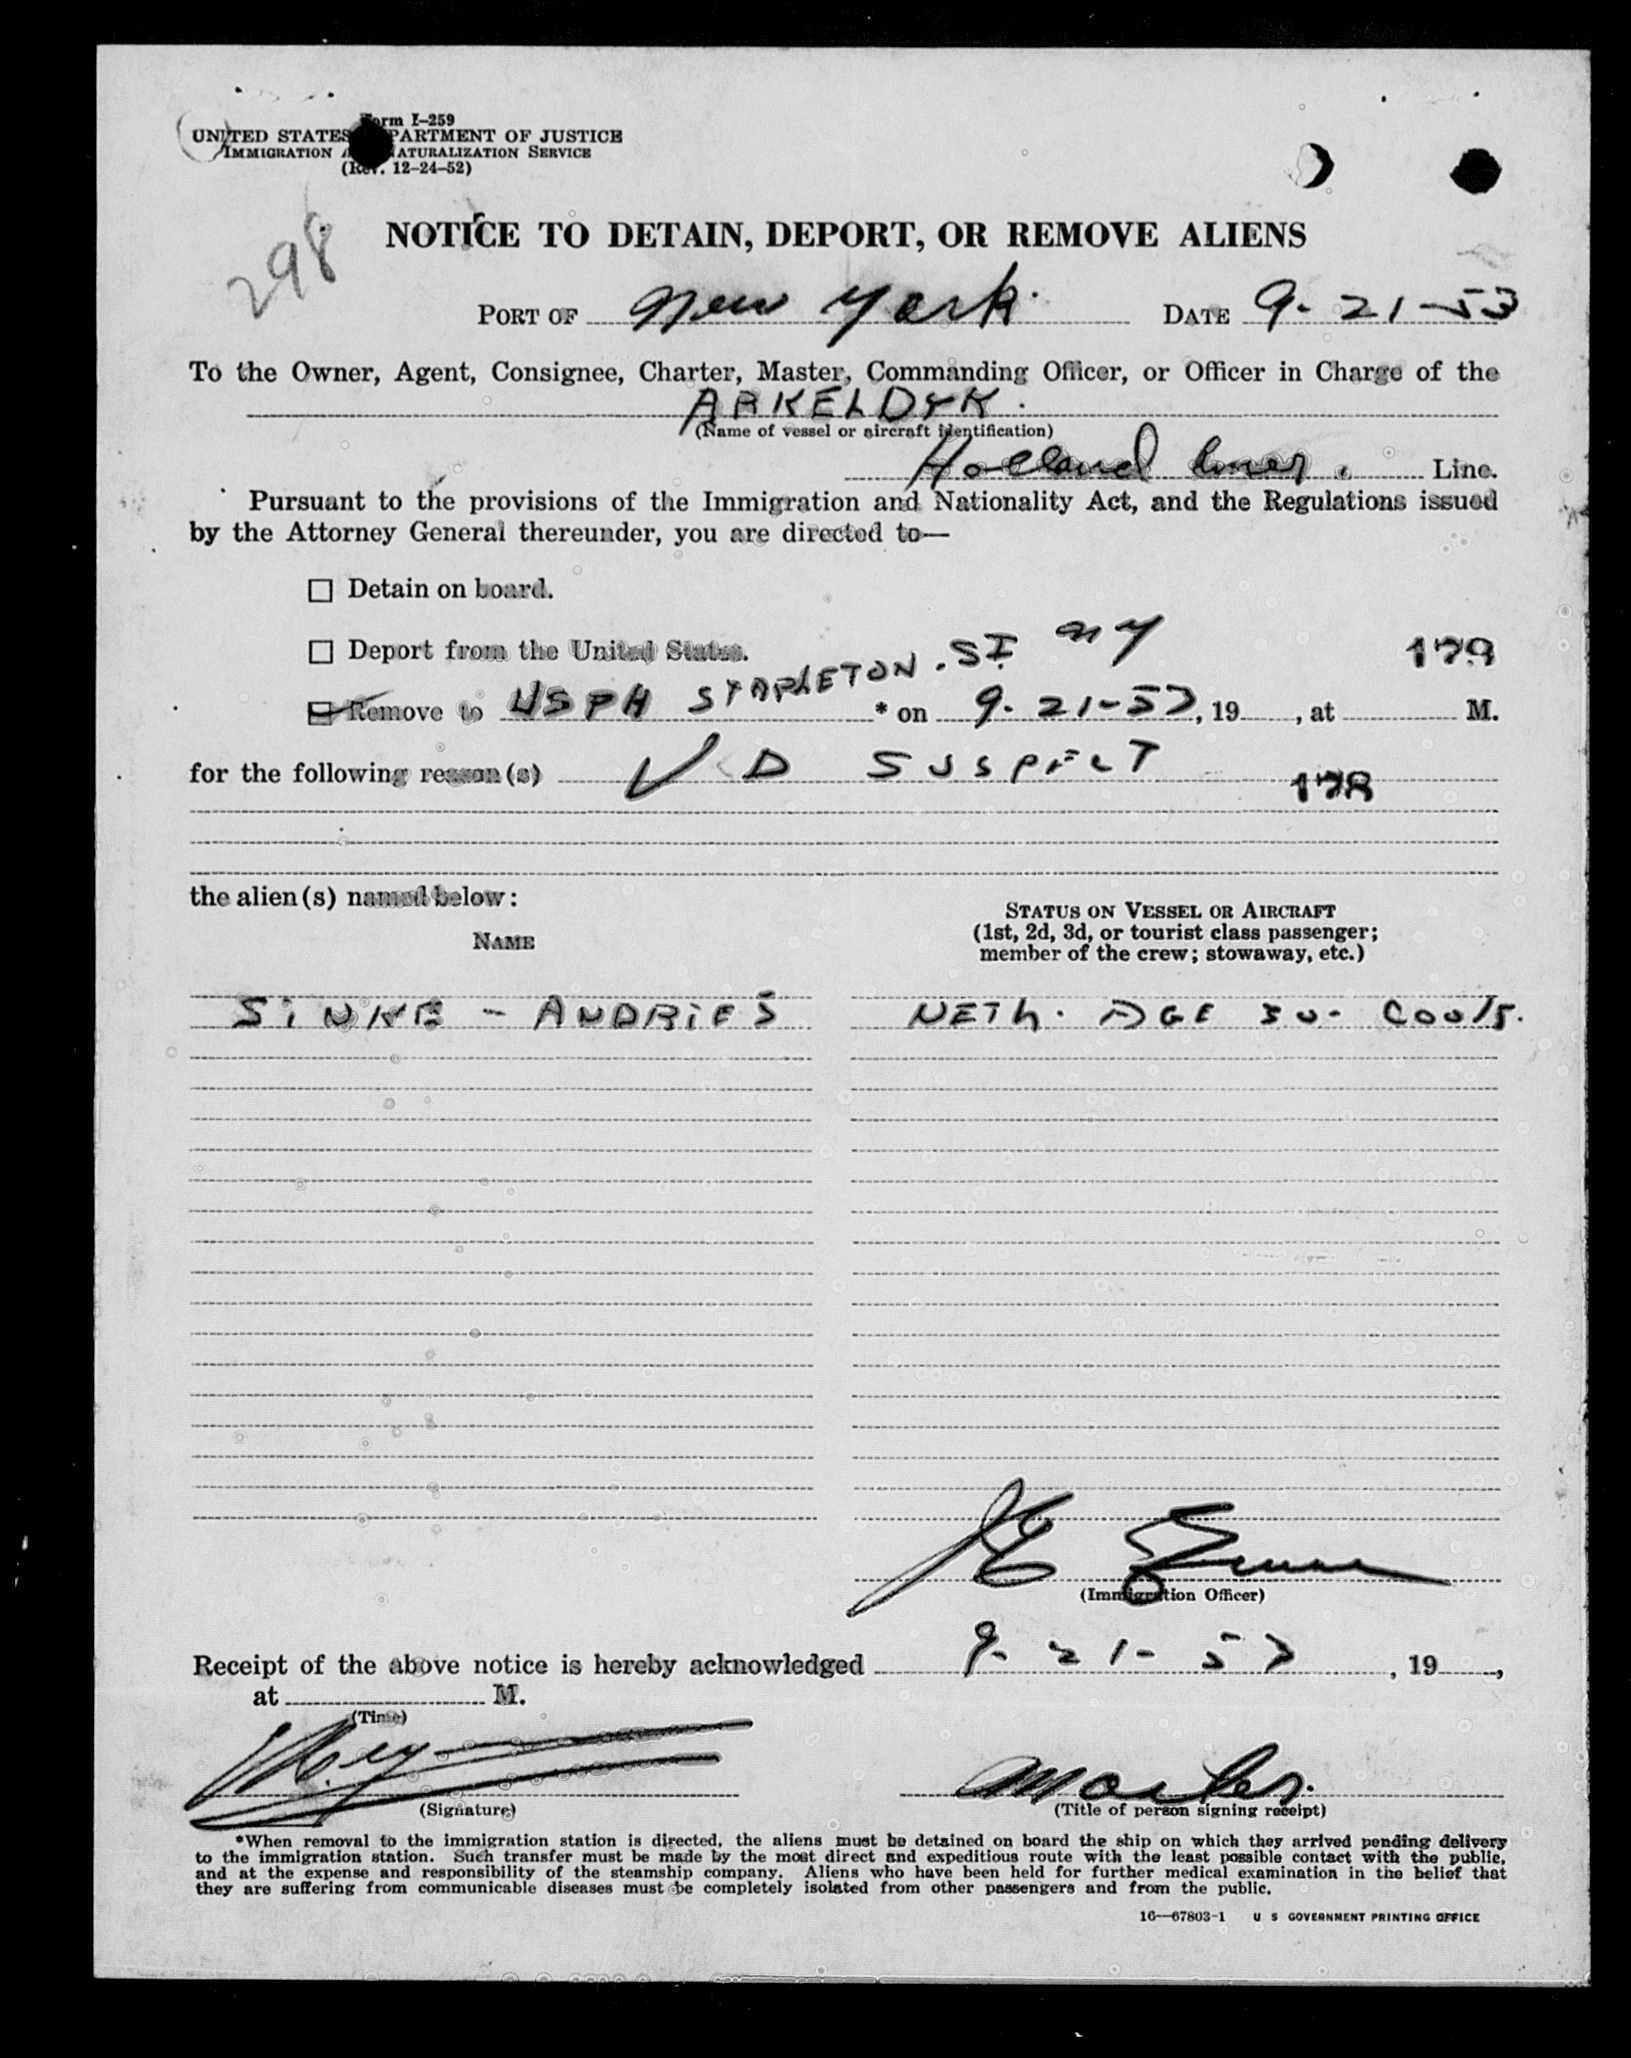 Form I-259
UNITED STATES DEPARTMENT OF JUSTICE
IMMIGRATION AND NATURALIZATION SERVICE
(Rev. 12-24-52)
298
NOTICE TO DETAIN, DEPORT, OR REMOVE ALIENS
PORT OF New York. DATE 9-21-53
To the Owner, Agent, Consignee, Charter, Master, Commanding Officer, or Officer in Charge of the
ARKELDYK.
(Name of vessel or aircraft identification)
Holland Line.
Pursuant to the provisions of the Immigration and Nationality Act, and the Regulations issued
by the Attorney General thereunder, you are directed to—
Detain on board.
Deport from the United States. 179
Remove to USPH STAPLETON. SI NY * on 9-21-53, 19, at M.
for the following reason(s) VD SUSPECT
178
the alien(s) named below:
NAME
STATUS ON VESSEL OR AIRCRAFT
(1st, 2d, 3d, or tourist class passenger;
member of the crew; stowaway, etc.)
SINKE - ANDRIES NETH. AGE 30-
(Immigration Officer)
Receipt of the above notice is hereby acknowledged 9-21-53, 19,
at M.
(Time)
Master.
(Signature) (Title of person signing receipt)
*When removal to the immigration station is directed, the aliens must be detained on board the ship on which they arrived pending delivery
to the immigration station. Such transfer must be made by the most direct and expeditious route with the least possible contact with the public,
and at the expense and responsibility of the steamship company. Aliens who have been held for further medical examination in the belief that
they are suffering from communicable diseases must be completely isolated from other passengers and from the public.
16—67803-1 U S GOVERNMENT PRINTING OFFICE